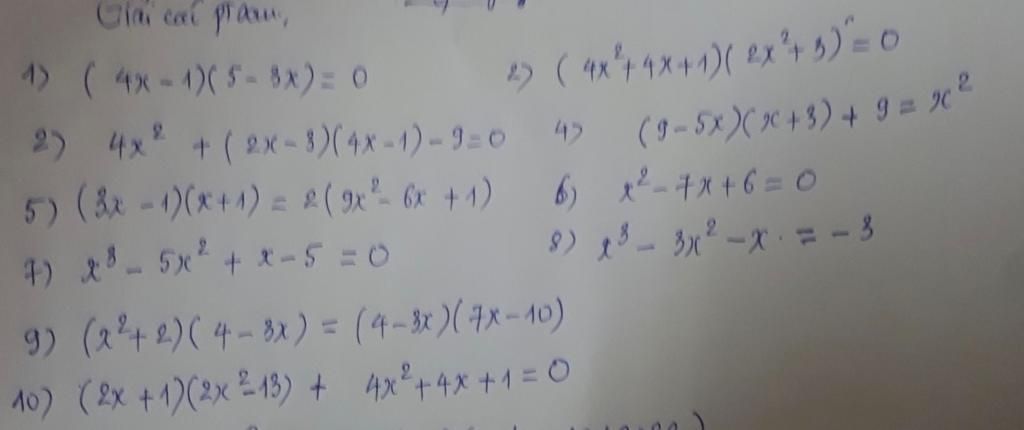 Giải các phtrình,
1) (4x - 1)(5 - 3x) = 0 2) (4x² + 4x + 1)(2x² + 3) = 0
2) 4x² + (2x - 3)(4x - 1) - 9 = 0 4) (9 - 5x)(x + 3) + 9 = x²
5) (3x - 1)(x + 1) = 2(9x² - 6x + 1) 6) x² - 7x + 6 = 0
7) x³ - 5x² + x - 5 = 0 8) x³ - 3x² - x = -3
9) (x² + 2)(4 - 3x) = (4 - 3x)(7x - 10)
10) (2x + 1)(2x² - 13) + 4x² + 4x + 1 = 0